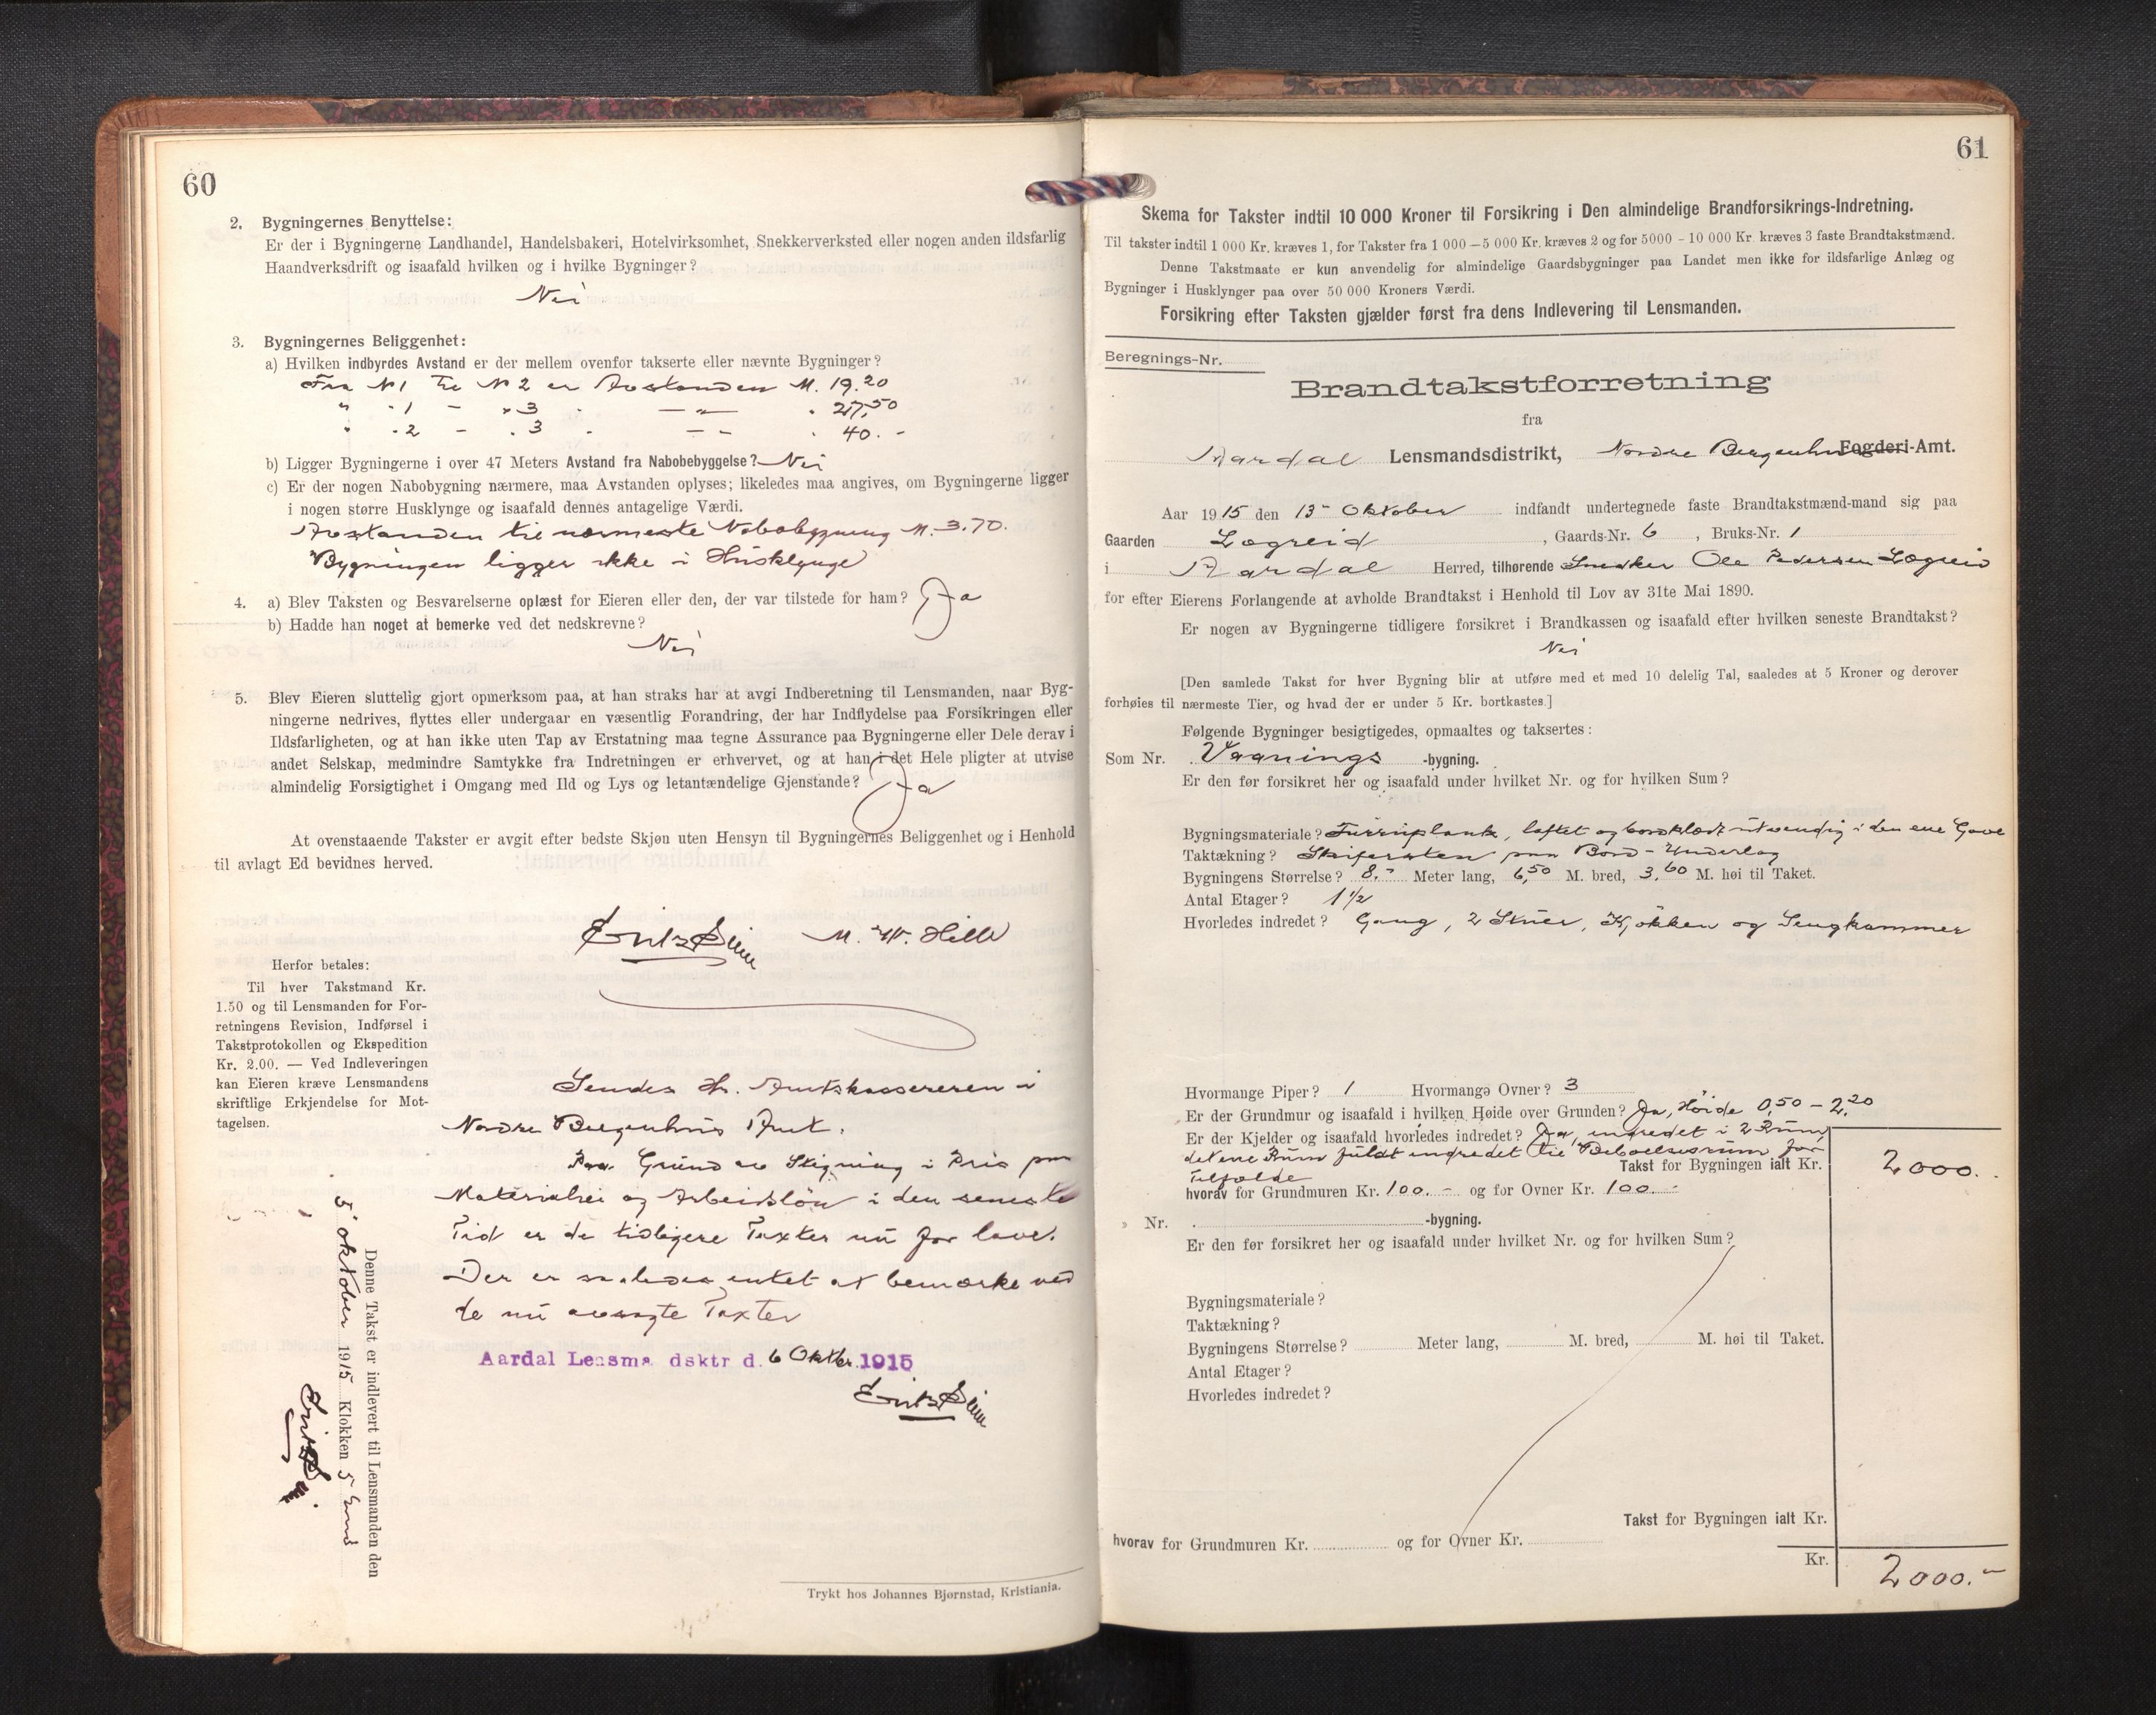 60
2. Bygningernes Benyttelse:
Er der i Bygningerne Landhandel, Handelsbakeri, Hotelvirksomhet, Snekkerverksted eller nogen anden ildsfarlig
Haandverksdrift og isaafald hvilken og i hvilke Bygninger?
Nei
3. Bygningernes Beliggenhet:
a) Hvilken indbyrdes Avstand er der mellem ovenfor takserte eller nævnte Bygninger?
Fra N 1 til N 2 er Avstanden M. 19.20
" " 1 - " 3 " — " — " 27,50
" " 2 - " 3 " — " — " 40. -
b) Ligger Bygningerne i over 47 Meters Avstand fra Nabobebyggelse? Nei
c) Er der nogen Nabobygning nærmere, maa Avstanden oplyses; likeledes maa angives, om Bygningerne ligger
i nogen større Husklynge og isaafald dennes antagelige Værdi.
Avstanden til nærmeste Nabobygning M. 3.70.
Bygningen ligger ikke i Husklynge
4. a) Blev Taksten og Besvarelserne oplæst for Eieren eller den, der var tilstede for ham? Ja
b) Hadde han noget at bemerke ved det nedskrevne?
Nei
5. Blev Eieren sluttelig gjort opmerksom paa, at han straks har at avgi Indberetning til Lensmanden, naar Byg-
ningerne nedrives, flyttes eller undergaar en væsentlig Forandring, der har Indflydelse paa Forsikringen eller
Ildsfarligheten, og at han ikke uten Tap av Erstatning maa tegne Assurance paa Bygningerne eller Dele derav i
andet Selskap, medmindre Samtykke fra Indretningen er erhvervet, og at han i det Hele pligter at utvise
almindelig Forsigtighet i Omgang med Ild og Lys og letantændelige Gjenstande? Ja
At ovenstaaende Takster er avgit efter bedste Skjøn uten Hensyn til Bygningernes Beliggenhet og i Henhold
til avlagt Ed bevidnes herved.
M. W. Hille
Herfor betales:
Til hver Takstmand Kr.
1.50 og til Lensmanden for For-
retningens Revision, Indførsel i
Takstprotokollen og Ekspedition
Kr. 2.00. — Ved Indleveringen
kan Eieren kræve Lensmandens
skriftlige Erkjendelse for Mot-
tagelsen.
Sendes Hr. Amtskassereren i
Nordre Bergenhus Amt.
Paa Grund av Stigning i Pris paa
Materialier og Arbeidsløn i den seneste
Tid er de tidligere Taxter nu for lave.
Der er saaledes intet at bemærke ved
de nu avsagte Taxter
Aardal Lensma dsktr d. 6 Oktbr. 1915
Denne Takst er indlevert til Lensmanden den
5 oktober 1915 Klokken 5 Emd
Trykt hos Johannes Bjørnstad, Kristiania.
61
Skema for Takster indtil 10 000 Kroner til Forsikring i Den almindelige Brandforsikrings-Indretning.
Til takster indtil 1 000 Kr. kræves 1, for Takster fra 1 000 — 5 000 Kr. kræves 2 og for 5000 - 10 000 Kr. kræves 3 faste Brandtakstmænd.
Denne Takstmaate er kun anvendelig for almindelige Gaardsbygninger paa Landet men ikke for ildsfarlige Anlæg og
Bygninger i Husklynger paa over 50 000 Kroners Værdi.
Forsikring efter Taksten gjælder først fra dens Indlevering til Lensmanden.
Beregnings-Nr.
Brandtakstforretning
fra
Aardal Lensmandsdistrikt, Nordre Bergenhus Fogderi-Amt.
Aar 1915 den 13 - Oktober indfandt undertegnede faste Brandtakstmænd-mand sig paa
Gaarden Lægreid, Gaards-Nr. 6, Bruks-Nr. 1
i Aardal Herred, tilhørende Snedker Ole Pedersen Lægreid
for efter Eierens Forlangende at avholde Brandtakst i Henhold til Lov av 31te Mai 1890.
Er nogen av Bygningerne tidligere forsikret i Brandkassen og isaafald efter hvilken seneste Brandtakst?
Nei
[Den samlede Takst for hver Bygning blir at utføre med et med 10 delelig Tal, saaledes at 5 Kroner og derover
forhøies til nærmeste Tier, og hvad der er under 5 Kr. bortkastes.]
Følgende Bygninger besigtigedes, opmaaltes og taksertes:
Som Nr. Vaanings -bygning.
Er den før forsikret her og isaafald under hvilket Nr. og for hvilken Sum?
Bygningsmateriale? Furruplank, laftet og bordklædt utvendig i den ene Gavl
Taktækning? Skifersten paa Bord-Underlag
Bygningens Størrelse? 8.- Meter lang, 6,50 M. bred, 3,60 M. høi til Taket.
Antal Etager? 1 1/2
Hvorledes indredet? Gang, 2 Stuer, Kjøkken og Sengkammer
Hvormange Piper? 1 Hvormange Ovner? 3
Er der Grundmur og isaafald i hvilken Høide over Grunden? Ja, Høide 0,50 - 2,20
Er der Kjelder og isaafald hvorledes indredet? Ja, indredet i 2 Rum,
det ene Rum fuldt indredet til Beboelsesrum for
Takst for Bygningen ialt Kr. 2000.
Tilfælde
hvorav for Grundmuren Kr. 100.- og for Ovner Kr. 100.-
" Nr. -bygning.
Er den før forsikret her og isaafald under hvilket Nr. og for hvilken Sum?
Bygningsmateriale?
Taktækning?
Bygningens Størrelse? Meter lang, M. bred, M. høi til Taket.
Antal Etager?
Hvorledes indredet?
Takst for Bygningen ialt Kr.
hvorav for Grundmuren Kr. og for Ovner Kr.
Kr. 2000.-